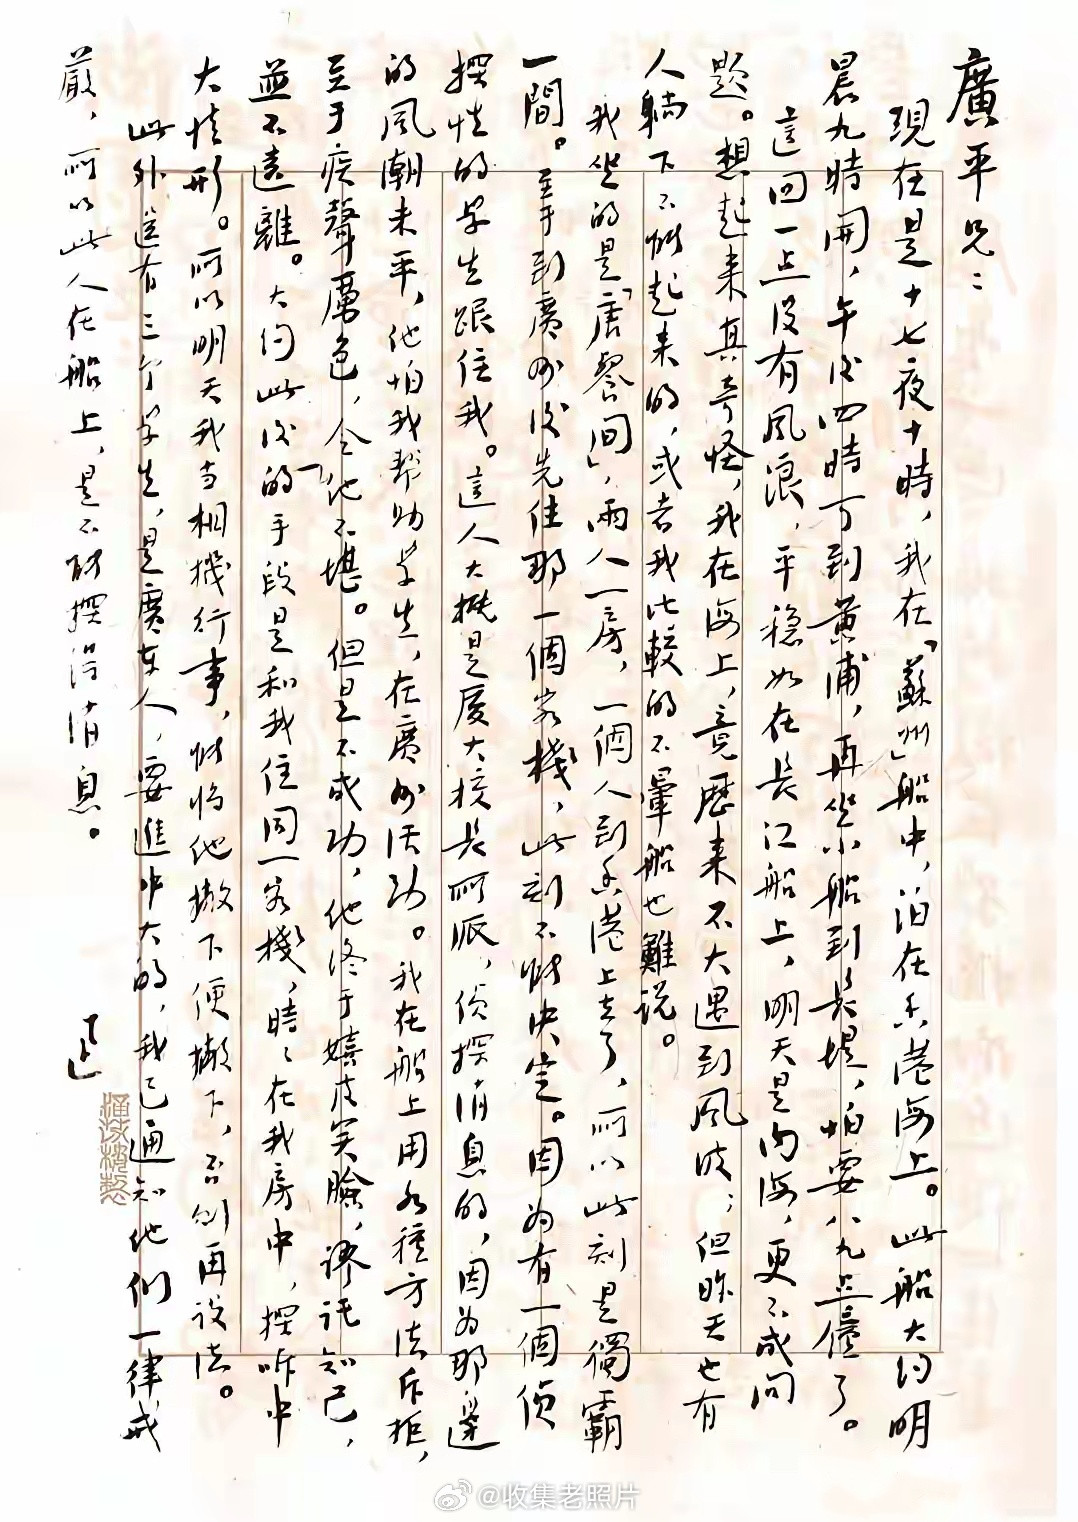 廣平兄：
現在是十七夜十時，我在「蘇州」船中，泊在香港海上。此船大约明
晨九時開，午后四時可到黄浦，再坐小船到長堤，怕要八九点鐘了。
這回一点没有風浪，平穏如在長江船上，明天是内海，更不成问
题。想起来真奇怪，我在海上，竟歷来不大遇到風波；但昨天也有
人躺下不能起来的，或者我比較的不暈船也難说。
我坐的是「唐餐间」，兩人一房，一個人到香港上去了，所以此刻是獨霸
一間。至于到廣州后先住那一個客棧，此刻不能决定。因为有一個侦
探性的学生跟住我。這人大概是厦大校長所派，侦探消息的，因为那邊
的風潮未平，他怕我帮助学生，在廣州活动。我在船上用各種方法斥拒，
至于疾聲厲色，令他不堪。但是不成功，他终于嬉皮笑臉，谬托知己，
並不遠離。大约此后的手段是和我住同一客棧，時〻在我房中，探听中
大情形。所以明天我当相機行事，能將他撇下便撇下，否则再设法。
此外還有三个学生，是廣東人，要進中大的，我已通知他们一律戒
嚴，所以此人在船上，是不能探得消息。
迅
@收集老照片